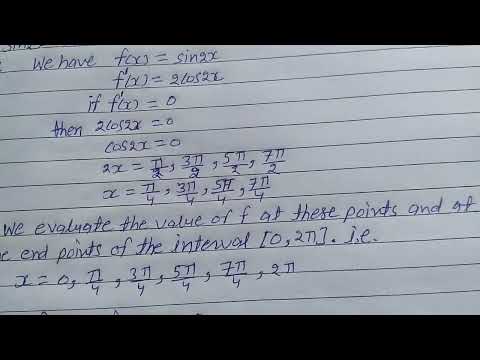 We have f(x) = sin2x
f'(x) = 2cos2x
if f'(x) = 0
then 2cos2x = 0
cos2x = 0
2x = π/2, 3π/2, 5π/2, 7π/2
x = π/4, 3π/4, 5π/4, 7π/4
We evaluate the value of f at these points and at
end points of the interval [0, 2π]. i.e.
x = 0, π/4, 3π/4, 5π/4, 7π/4, 2π